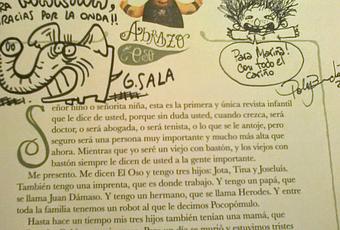 GRACIAS POR LA ONDA!!
Abrazo
eso
G. SALA
Para Marina!
Con todo el
Cariño
Señor niño o señorita niña, esta es la primera y única revista infantil
que le dice de usted, porque sin duda usted, cuando crezca, será
doctor, o será abogado, o será tenista, o lo que se le antoje, pero
seguro será una persona muy importante y mucho más alta que
ahora. Mientras que yo seré un viejo con bastón, y los viejos con
bastón siempre le dicen de usted a la gente importante.
Me presento. Me dicen El Oso y tengo tres hijos: Jota, Tina y Joseluís.
También tengo una imprenta, que es donde trabajo. Y tengo un papá, que
se llama Juan Dámaso. Y tengo un hermano, que se llama Herodes. Y entre
toda la familia tenemos un robot al que le decimos Pocopómulo.
Hasta hace un tiempo mis tres hijos también tenían una mamá, que